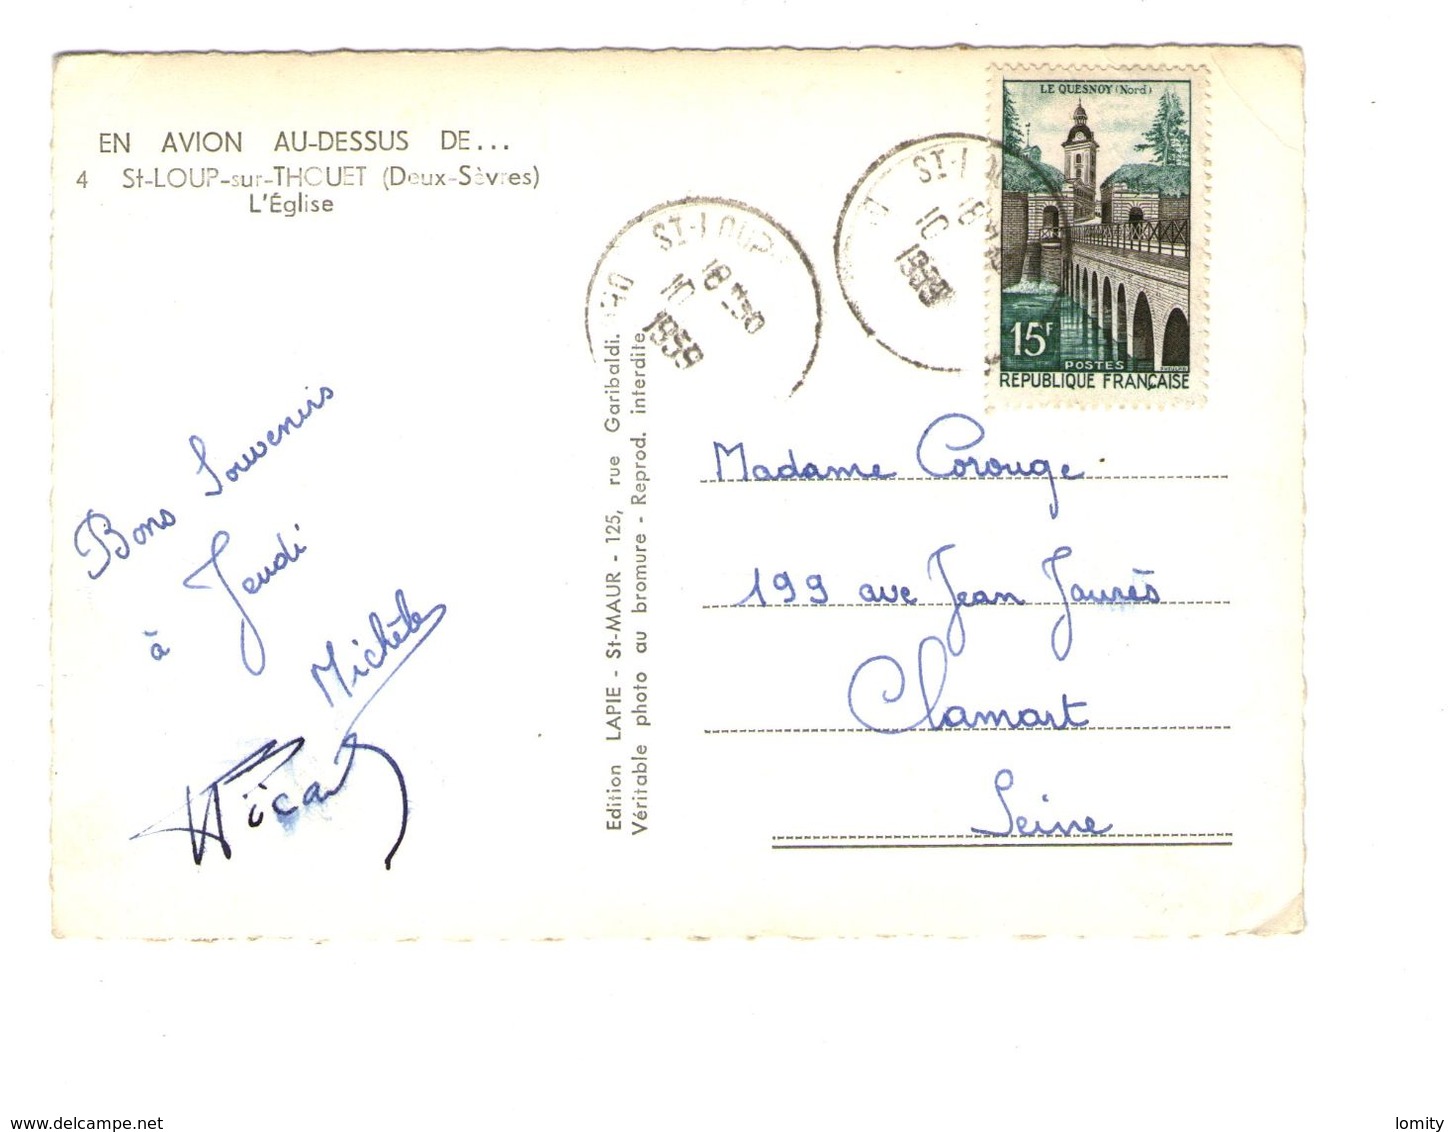 EN AVION AU-DESSUS DE...
4 St-LOUP-sur-THOUET (Deux-Sèvres)
L'Église
Bons Souvenirs
à Jeudi
Michèle
Picard
Edition LAPIE - St-MAUR - 125, rue Garibaldi.
Véritable photo au bromure - Reprod. interdite
ST-LOUP
18
10
1959
ST-L
18
10
1959
LE QUESNOY (Nord)
15F
POSTES
REPUBLIQUE FRANÇAISE
Madame Corouge
199 ave Jean Jaurès
Clamart
Seine
www.delcampe.net
lomity